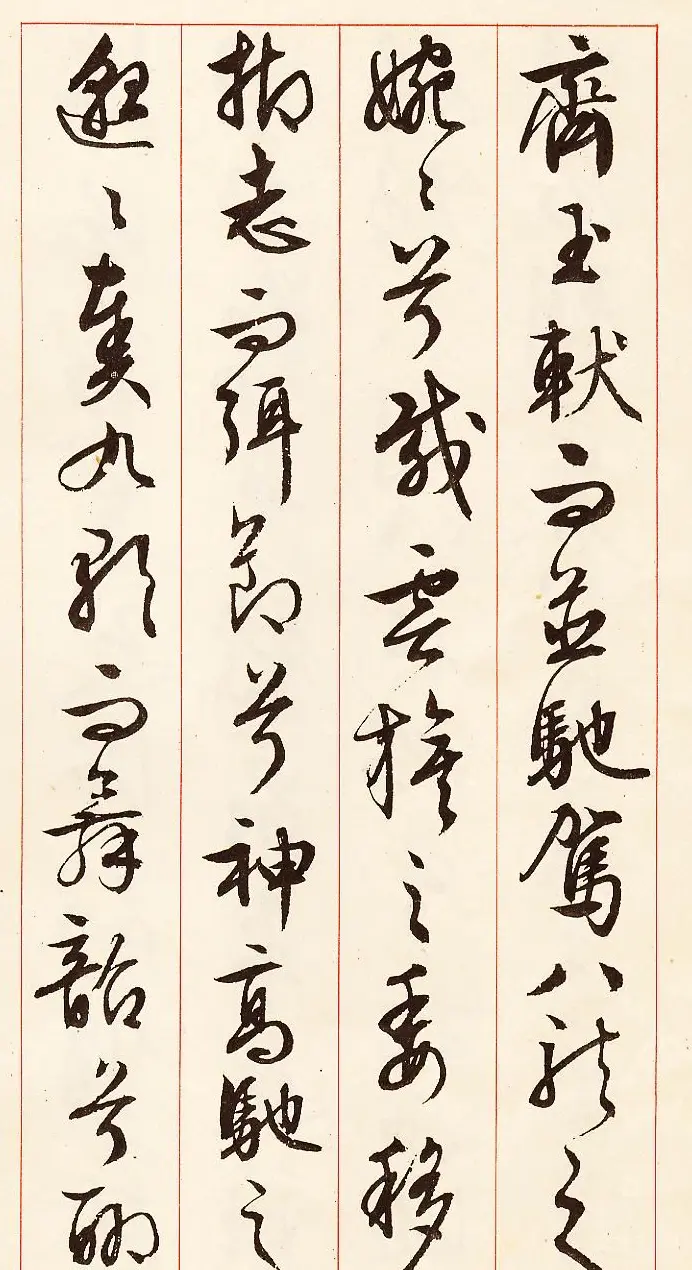 齊玉軑而並馳駕八龍之
婉〻兮載雲旗之委移
抑志而弭節兮神高馳之
邈〻奏九歌而舞韶兮聊